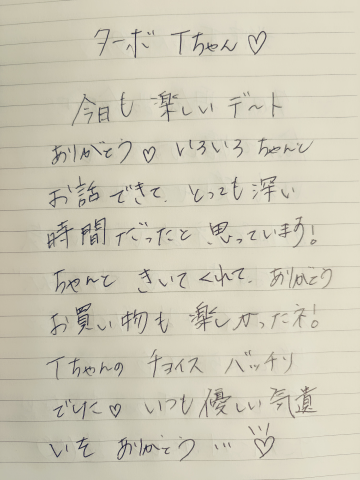 ターボ Tちゃん♡
今日も 楽しい デート
ありがとう♡ いろいろ ちゃんと
お話できて、とっても 深い
時間だったと 思っています!
ちゃんと きいてくれて、ありがとう
お買い物も 楽しかったネ!
Tちゃんの チョイス バッチリ
でした♡ いつも優しい気遣
いを ありがとう…♡